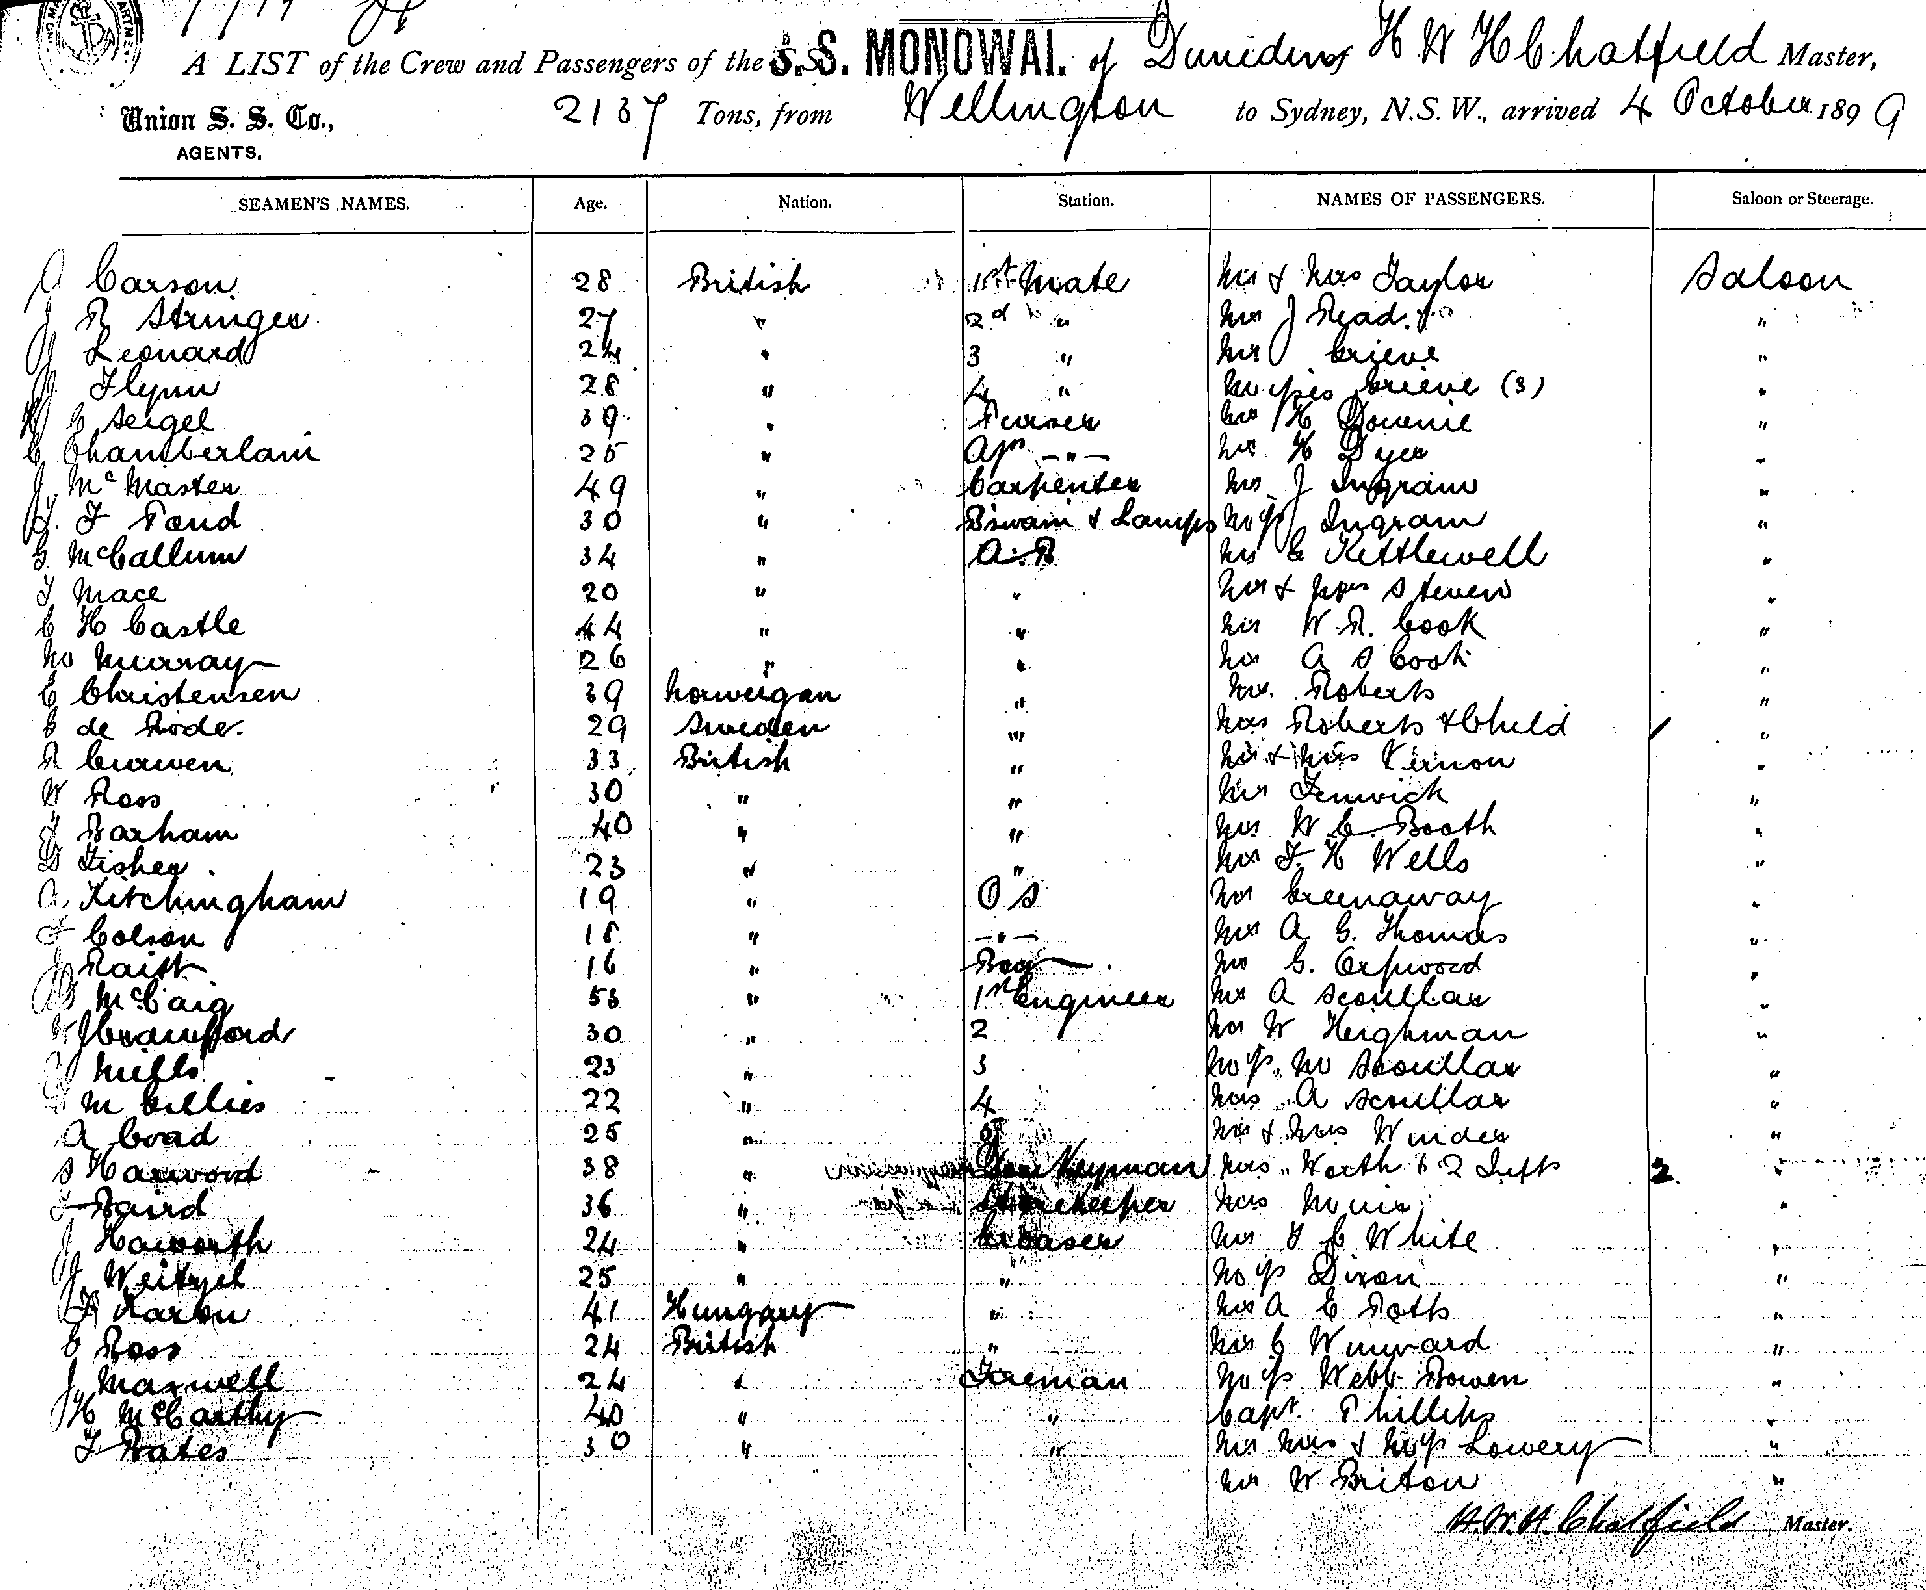 A LIST of the Crew and Passengers of the S.S. MONOWAI. of Dunedin, H W H Chatfield Master,
Union S. S. Co., 2137 Tons, from Wellington to Sydney, N.S.W., arrived 4 October 1899
AGENTS.
SEAMEN'S NAMES. Age. Nation. Station. NAMES OF PASSENGERS. Saloon or Steerage.
Carson 28 British 1st Mate Mr & Mrs Taylor Saloon
J R Stringer 27 " 2d " Mr J Read "
J Leonard 24 " 3 " Mr Grieve "
J Flynn 28 " 4 " Misses Grieve (3) "
H C Seigel 39 " Purser Mr H Downie "
C Chamberlain 25 " " Mr H Dyer "
J McMaster 49 " Carpenter Mr J Ingram "
T. F Pond 30 " Bswain & Lamps Miss Ingram "
G McCallum 34 " A.B Mr C Kettlewell "
T Mace 20 " " Mr & Mrs Steven "
C H Castle 44 " " Mr W. R. Cook "
M Murray 26 " " Mr A S Cook "
C Christensen 39 Norweigan " Mr. Roberts "
de Rode. 29 Sweden " Mrs Roberts & Child "
R Curwen 33 British " Mr & Mrs Vernon "
W Ross 30 " " Mr Fenwick "
J Barham 40 " " Mr W C Booth "
D Fisher 23 " " Mr F H Wells "
A Kitchingham 19 " O S Mr Greenaway "
F Colson 18 " " Mr A G. Thomas "
J Raitt 16 " Boy Mr G. Orpwood "
McCaig 53 " 1st Engineer Mr A Scoullar "
Crawford 30 " 2 Mr W Heighman "
Mills 23 " 3 Miss M Scoullar "
M Gillies 22 " 4 Mrs A Scoullar "
A Coad 25 " 5 Mr & Mrs Winder "
S Harwood 38 " Donkeyman Mrs Worth & 2 Infts 2 "
T Baird 36 " Storekeeper Mrs Muir "
J Haworth 24 " Greaser Mr T C White "
J Weitzel 25 " " Miss Dixon "
Karon 41 Hungary " Mr A E Potts "
E Ross 24 British " Mr C Winward "
J Maxwell 24 " Fireman Miss Webb Bowen "
H McCarthy 40 " " Capt. Phillips "
T Bates 30 " " Mr Mrs & Miss Lowery "
Mr W Briton "
H.W.H. Chatfield Master.